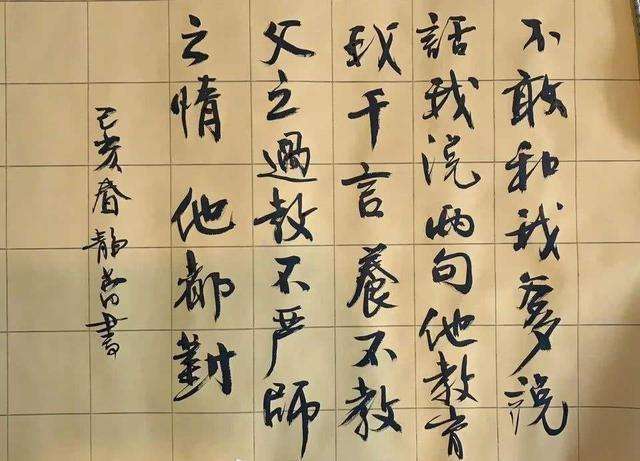 不敢和我爹说
話我说两句他教育
我千言養不教
父之過教不严師
之情他都對
己亥春静書